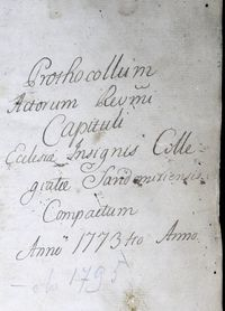 Prothocollum
Actorum Revmi
Capituli
Eclesiæ Insignis Colle
giatæ Sandomiriensis
Compactum
Anno 1773tio Anno
1795